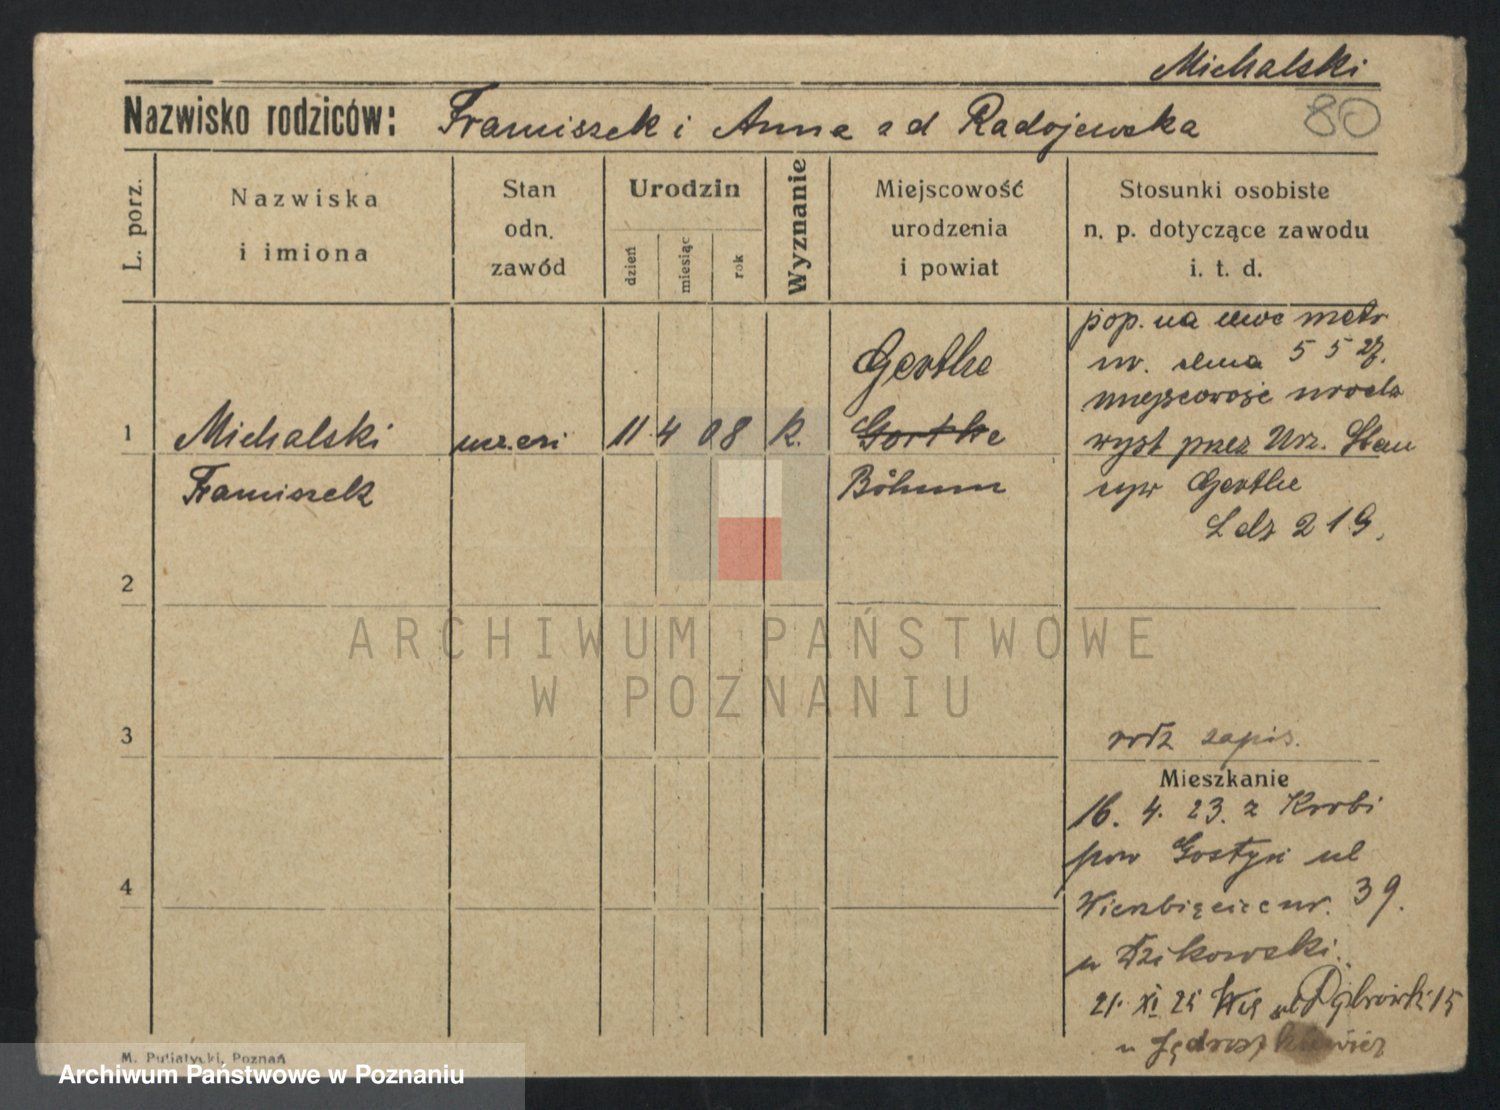 Michalski
Nazwisko rodziców: Franciszek i Anna od Radojewska
80
L. porz.
Nazwiska i imiona
Stan odn. zawód
Urodzin
dzień
miesiąc
rok
Wyznanie
Miejscowość urodzenia i powiat
Stosunki osobiste n. p. dotyczące zawodu i. t. d.
1
Michalski
Franciszek
uczeń
11 4 08
k.
Gerthe
Gortke
Böhum
pop. na metr
nr. 5 5 27.
miejscowość urodz
wyst przez Urz. Stan
cyw Gerthe
L dz 219.
2
ARCHIWUM PAŃSTWOWE
W POZNANIU
3
rodz zapis.
Mieszkanie
16. 4. 23. z Krobi
pow Gostyń ul
Wierzbięcice nr. 39.
u
4
21. XI 25 15
u
M. Putiatycki, Poznań
Archiwum Państwowe w Poznaniu